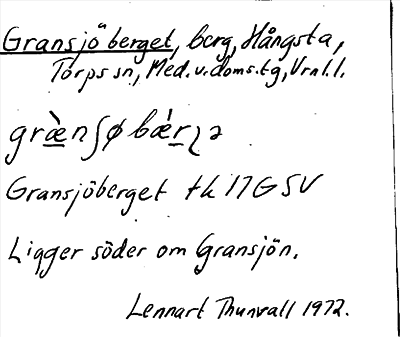 Gransjöberget, berg, Hångsta,
Torps sn, Med. v. doms. tg, Vrnl. l.
græ̀nʃøbǽrʅə
Gransjöberget tk 17G SV
Ligger söder om Gransjön.
Lennart Thunvall 1972.